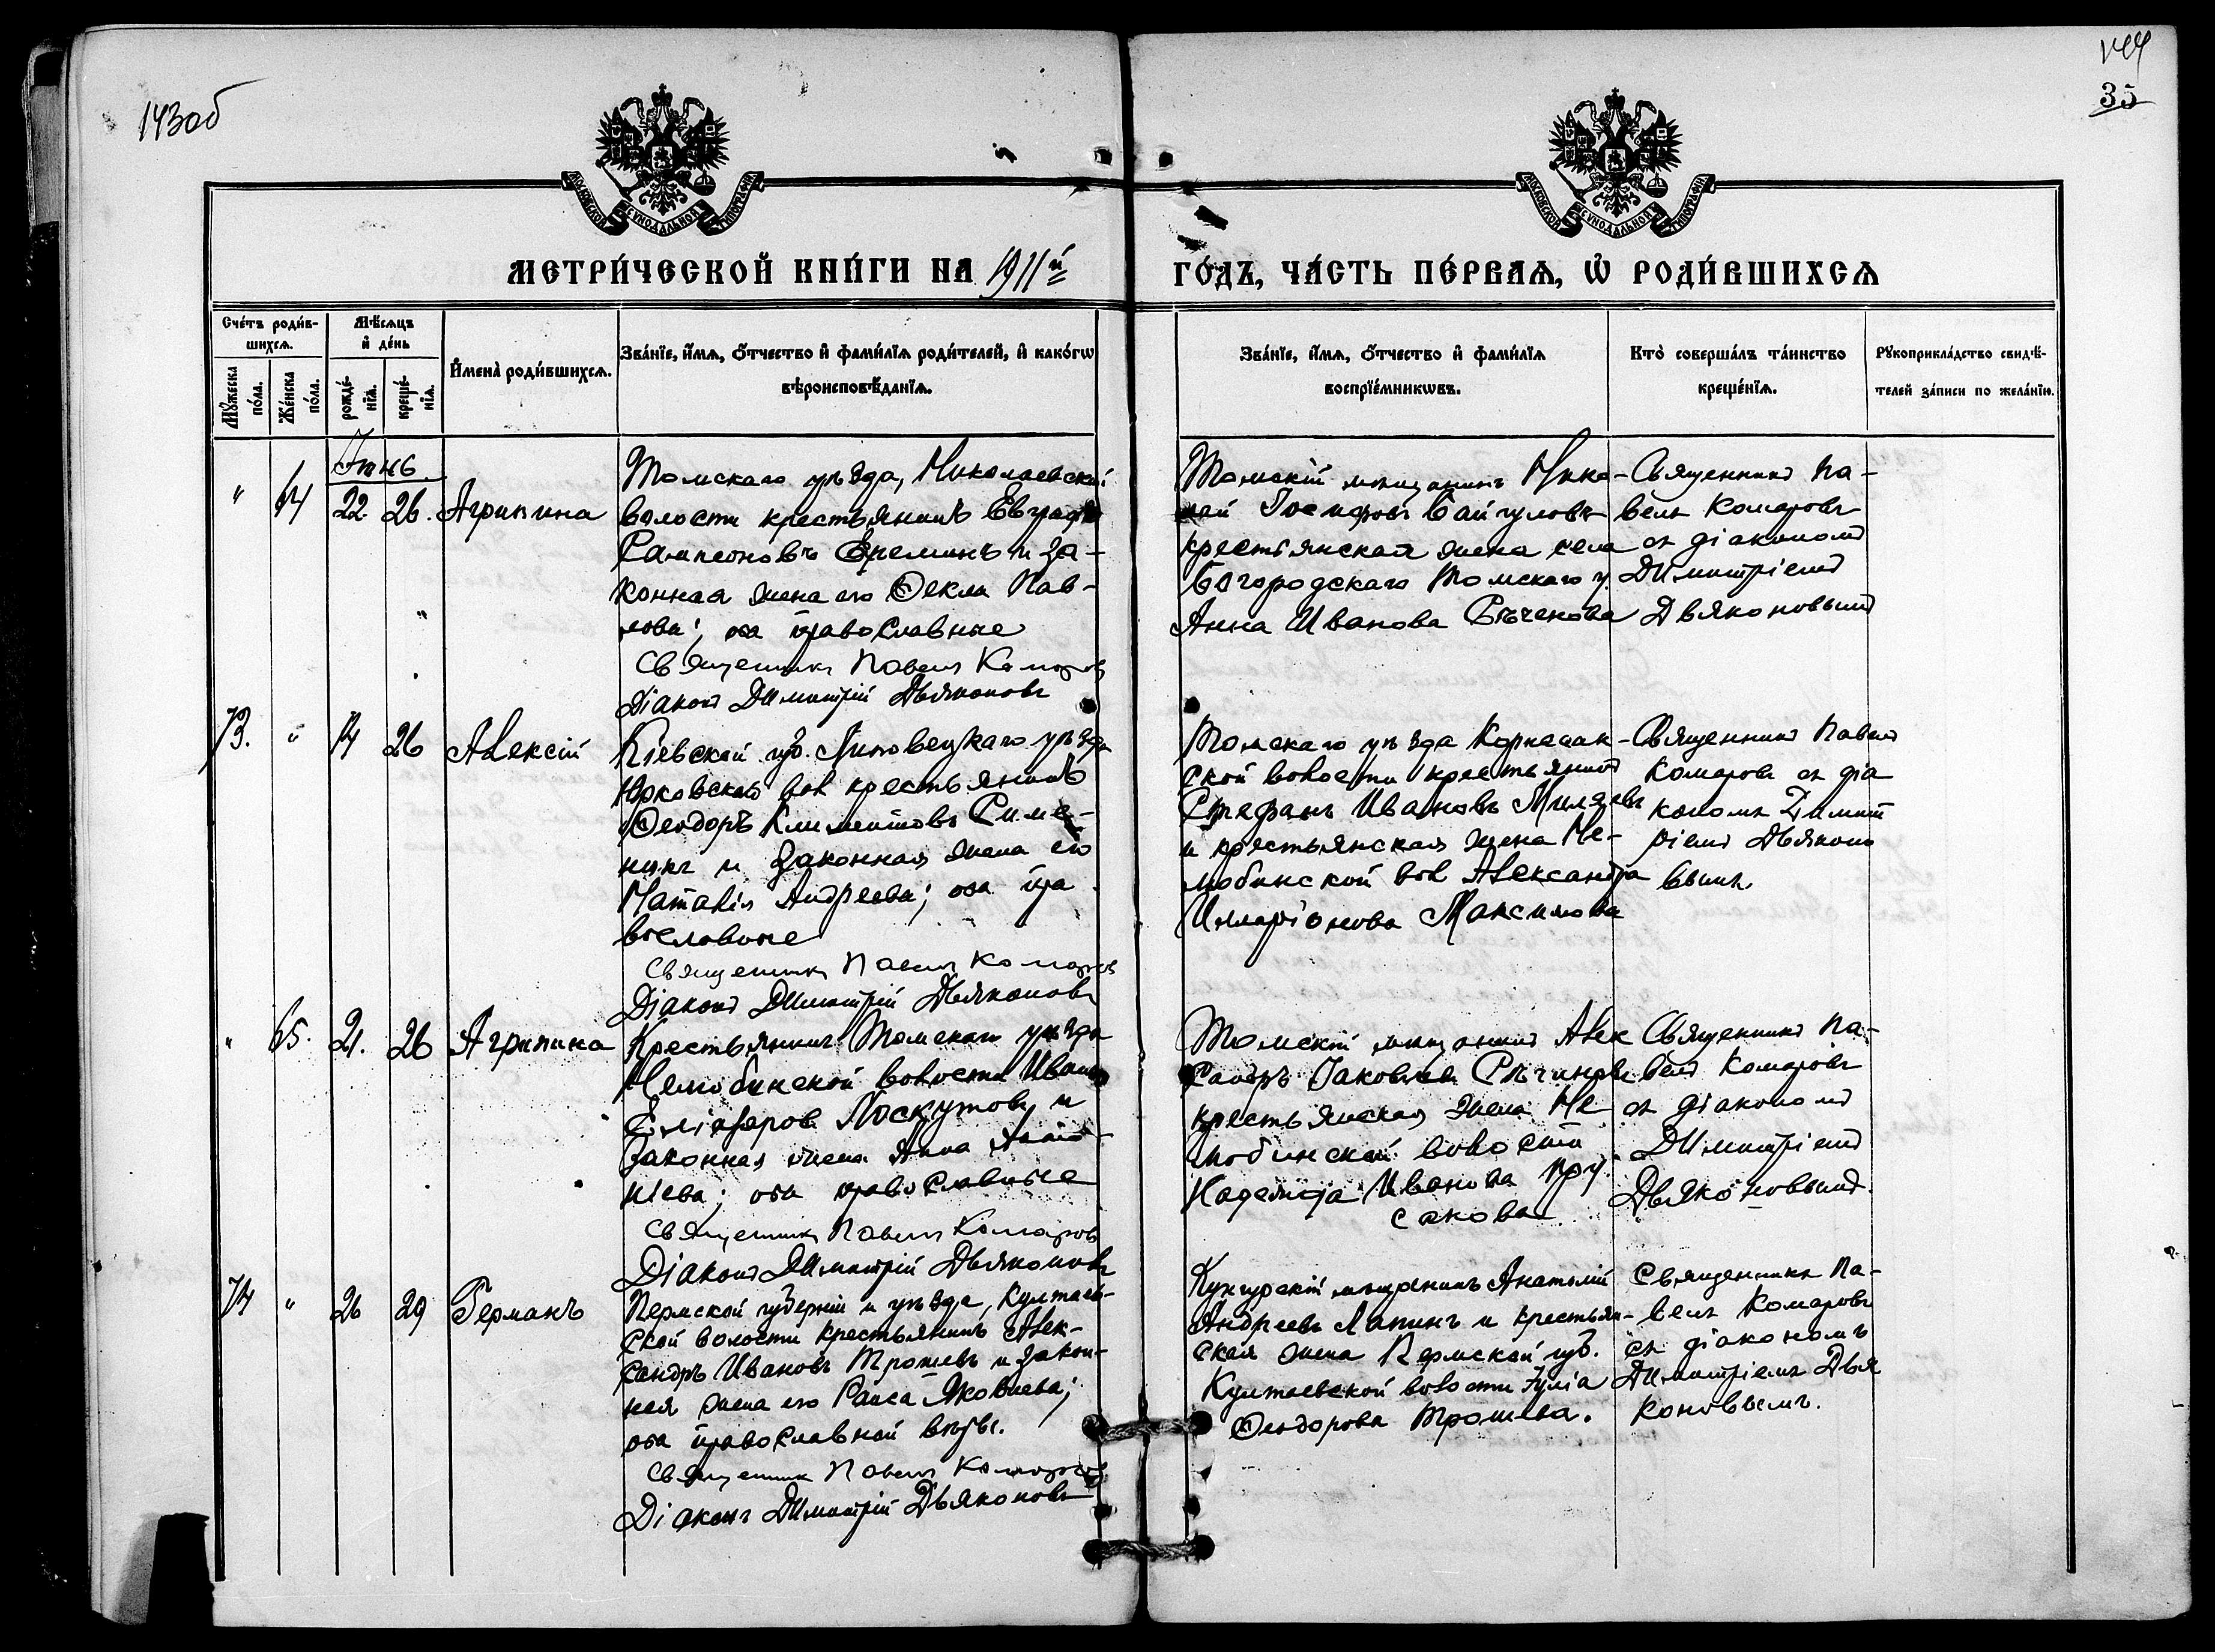 143об
144
35
МОСКОВСКОЙ СѴНОДАЛЬНОЙ ТИПОГРАФІИ
МОСКОВСКОЙ СѴНОДАЛЬНОЙ ТИПОГРАФІИ
МЕТРИ́ЧЕСКОЙ КНИ́ГИ НА 1911й
ГО́ДЪ, ЧА́СТЬ ПЕ́РВАѦ, Ѡ҆ РОДИ́ВШИХСѦ
Сче́тъ роди́в-
шихсѧ.
Мꙋ́жеска по́ла.
Же́нска по́ла.
Мѣ́сѧцъ
и҆ де́нь
рожде́-
нїѧ.
креще́-
нїѧ.
И҆мена̀ роди́вшихсѧ.
Зва́нїе, и҆́мѧ, ѻ҆́тчество и҆ фами́лїѧ роди́телей, и҆ како́гѡ
вѣроисповѣ́данїѧ.
Зва́нїе, и҆́мѧ, ѻ҆́тчество и҆ фами́лїѧ
воспрїе́мникѡвъ.
Кто̀ соверша́лъ та́инство
креще́нїѧ.
Рꙋкоприкла́дство свидѣ́-
телей за́писи по жела́нїю.
Іюнь
" 64 22 26. Агрипина
Томскаго уѣзда, Николаевской
волости крестьянинъ Евграфъ
Сампсоновъ Ереминъ и за-
конная жена его Ѳекла Пав-
лова; оба православные
Священникъ Павелъ Комаровъ
Діаконъ Димитрій Дьяконовъ
Томскій мѣщанинъ Нико-
лай Іосифовъ Байгуловъ
крестьянская жена села
Богородскаго Томскаго у.
Анна Иванова Сѣченова
Священникъ Па-
велъ Комаровъ
съ діакономъ
Димитріемъ
Дьяконовымъ
73. " 14 26 Алексій
Кіевской губ. Липовецкаго уѣзда
Юрковской вол крестьянинъ
Ѳеодоръ Климентовъ
и законная жена его
Наталія Андреева; оба пра
вославные
Священникъ Павелъ Комаровъ
Діаконъ Димитрій Дьяконовъ
Томскаго уѣзда
ской волости крестьянинъ
Стефанъ Ивановъ Миляевъ
и крестьянская жена Не-
любинской вол Александра
Илларіонова Максимова
Священникъ Павелъ
Комаровъ съ діа
кономъ Димит
ріемъ Дьяконо
вымъ.
" 65. 21. 26 Агрипина
Крестьянинъ Томскаго уѣзда
Нелюбинской волости Иванъ
Еліазаровъ Лоскутовъ и
законная жена Анна
оба православные
Священникъ Павелъ Комаровъ
Діаконъ Димитрій Дьяконовъ
Томскій мѣщанинъ Алек
сандръ Іаковлевъ Сѣчиновъ
крестьянская жена Не
любинской волости
Надежда Иванова Пру
сакова
Священникъ Па-
велъ Комаровъ
съ діакономъ
Димитріемъ
Дьяконовымъ.
74 " 26 29 Германъ
Пермской губерніи и уѣзда, Култаев-
ской волости крестьянинъ Алек-
сандръ Ивановъ Трошевъ и закон-
ная жена его Раиса Яковлева;
оба православной вѣры.
Священникъ Павелъ Комаровъ
Діаконъ Димитрій Дьяконовъ
Кунгурскій мѣщанинъ Анатолій
Андреевъ Лапинъ и крестьян-
ская жена Пермской губ.
Култаевской волости Іулія
Ѳеодорова Трошева.
Священникъ Па-
велъ Комаровъ
съ діакономъ
Димитріемъ Дья
коновымъ.